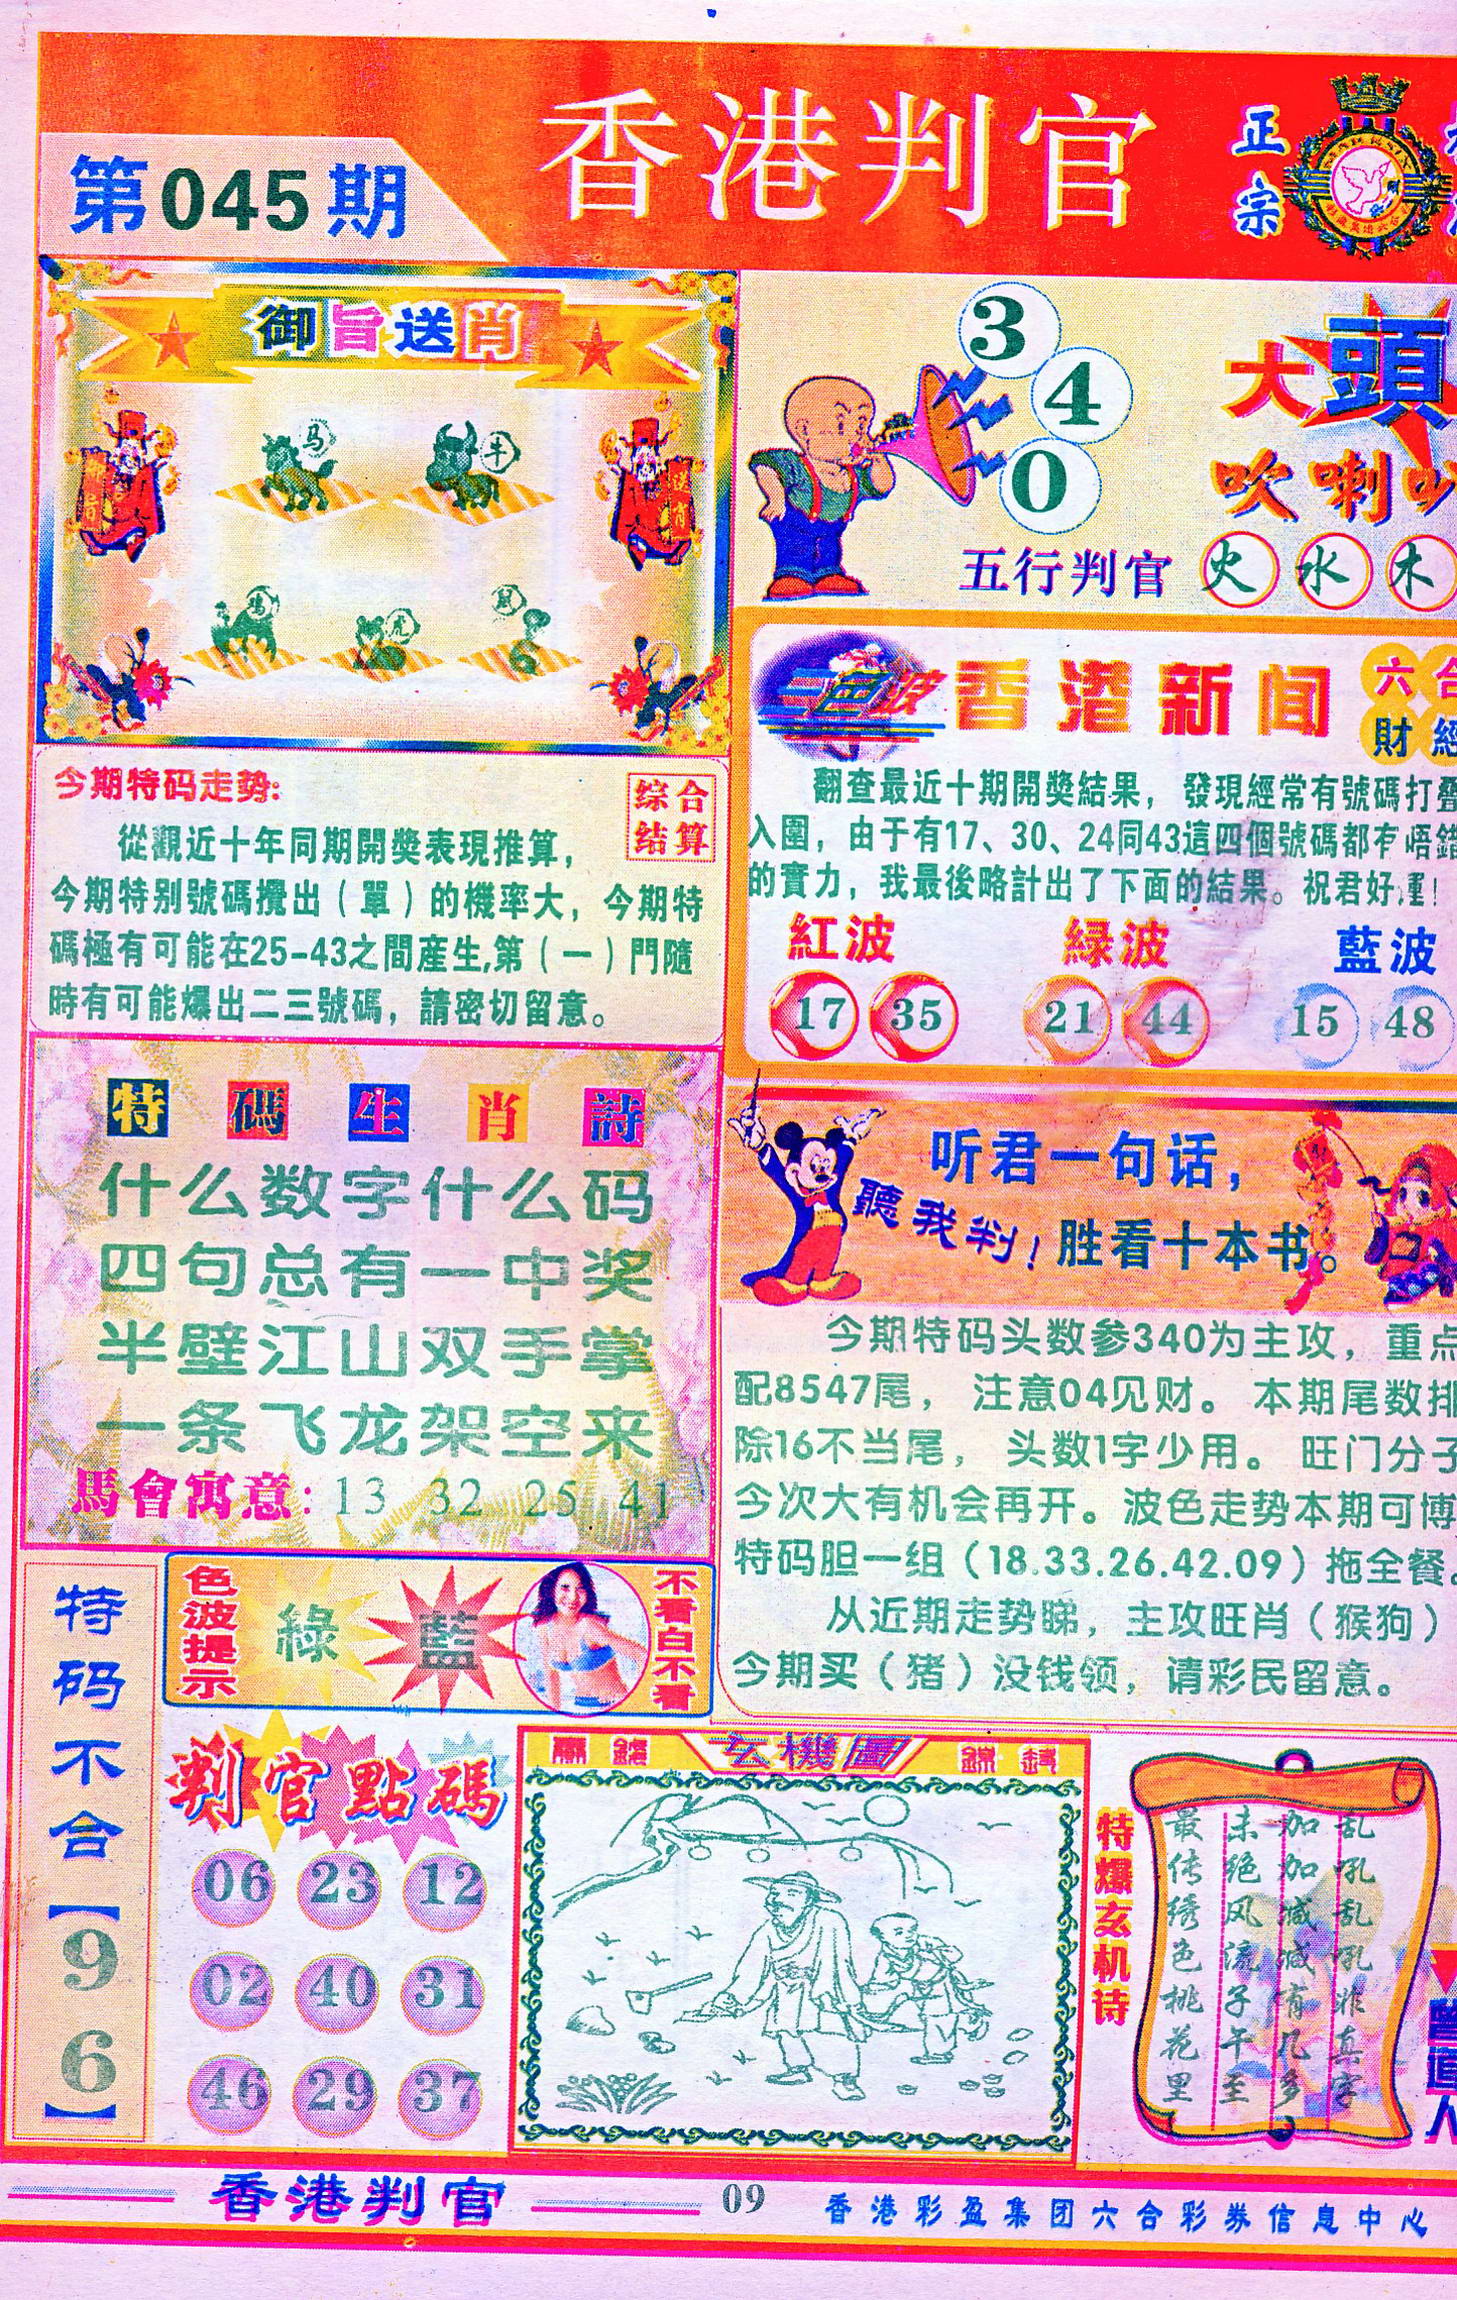 第045期
香港判官
正宗
御旨送肖
马
牛
鸡
虎
鼠
3
4
0
大頭
吹喇
五行判官 火 水 木
今期特码走势:
综合
结算
從觀近十年同期開獎表現推算,
今期特别號碼攪出(單)的機率大, 今期特
碼極有可能在25-43之間産生,第(一)門隨
時有可能爆出二三號碼, 請密切留意。
三色波
香港新闻
六合
財經
翻查最近十期開獎結果, 發現經常有號碼打叠
入圍, 由于有17、30、24同43這四個號碼都有唔錯
的實力, 我最後略計出了下面的結果。祝君好運!
紅波 緑波 藍波
17 35 21 44 15 48
特碼生肖詩
什么数字什么码
四句总有一中奖
半壁江山双手掌
一条飞龙架空来
馬會寓意: 13 32 25 41
听君一句话,
聽我判!
胜看十本书。
今期特码头数参340为主攻, 重点
配8547尾, 注意04见财。本期尾数排
除16不当尾, 头数1字少用。旺门分子
今次大有机会再开。波色走势本期可博
特码胆一组(18.33.26.42.09)拖全餐。
从近期走势睇, 主攻旺肖(猴狗)
今期买(猪)没钱领, 请彩民留意。
特码不合【96】
色波提示
綠 藍
不看白不看
判官點碼
06 23 12
02 40 31
46 29 37
玄機圖
特爆玄机诗
乱吼乱吼非真宰
加加减减有几多
未绝风流子午至
最传绣色桃花里
曾道人
香港判官
09
香港彩盈集团六合彩券信息中心